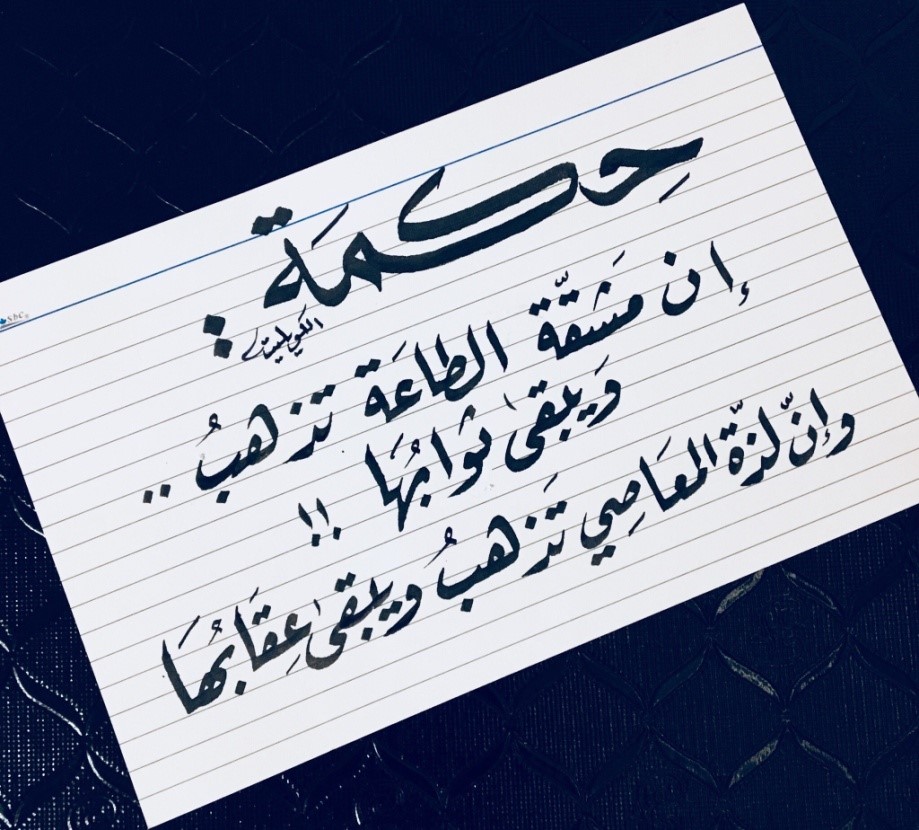 حِكمَة :
إن مَشقّة الطاعَة تذهبُ ..
وَيبقى ثوابُهَا !!
وإنّ لذّة المعَاصِي تَذهبُ ويبقى عِقَابُهَا